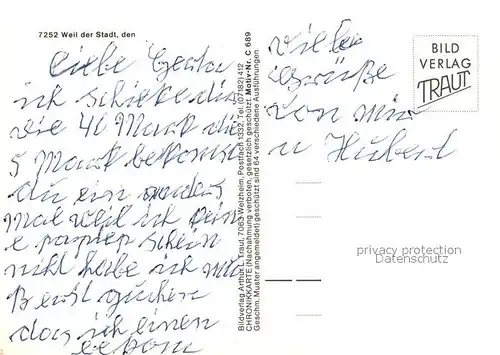 7252 Weil der Stadt, den
Liebe Gerda
ich schicke dir
die 40 Mark die
5 Mark bekomst
du ein anders
mal weil ich kein
e papier schein
nicht habe ich
das ich einen
bekom
Bildverlag Arthur L. Traut, 7063 Welzheim, Postfach 1332, Tel. (07182) 412
CHRONIKKARTE (Nachahmung verboten, gesetzlich geschützt. Motiv-Nr. C 689
Geschm. Muster angemeldet) geschützt sind 64 verschiedene Ausführungen
viele
Grüße
von mir
u Hubert
BILD
VERLAG
TRAUT
privacy protection
Datenschutz